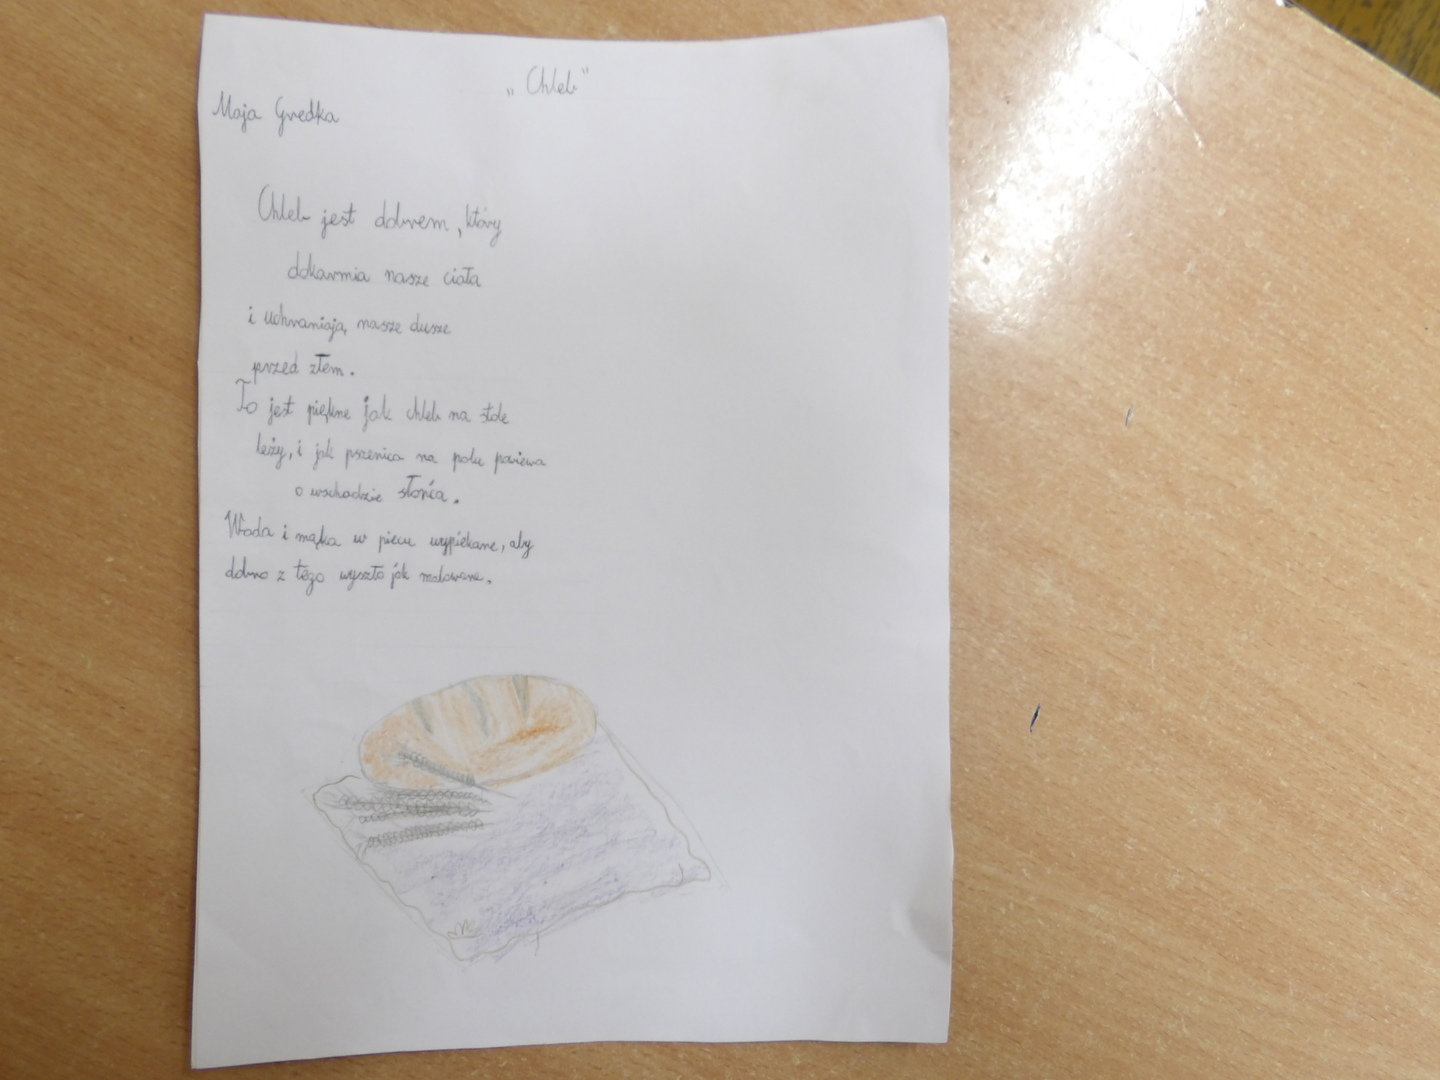 „Chleb"
Maja Gredka
Chleb jest dobrem, który
dokarmia nasze ciała
i uchraniają nasze dusze
przed złem.
To jest piękne jak chleb na stole
leży, i jak pszenica na polu powiewa
o wschodzie słońca.
Woda i mąka w piecu wypiekane, aby
dobro z tego wyszło jak malowane.